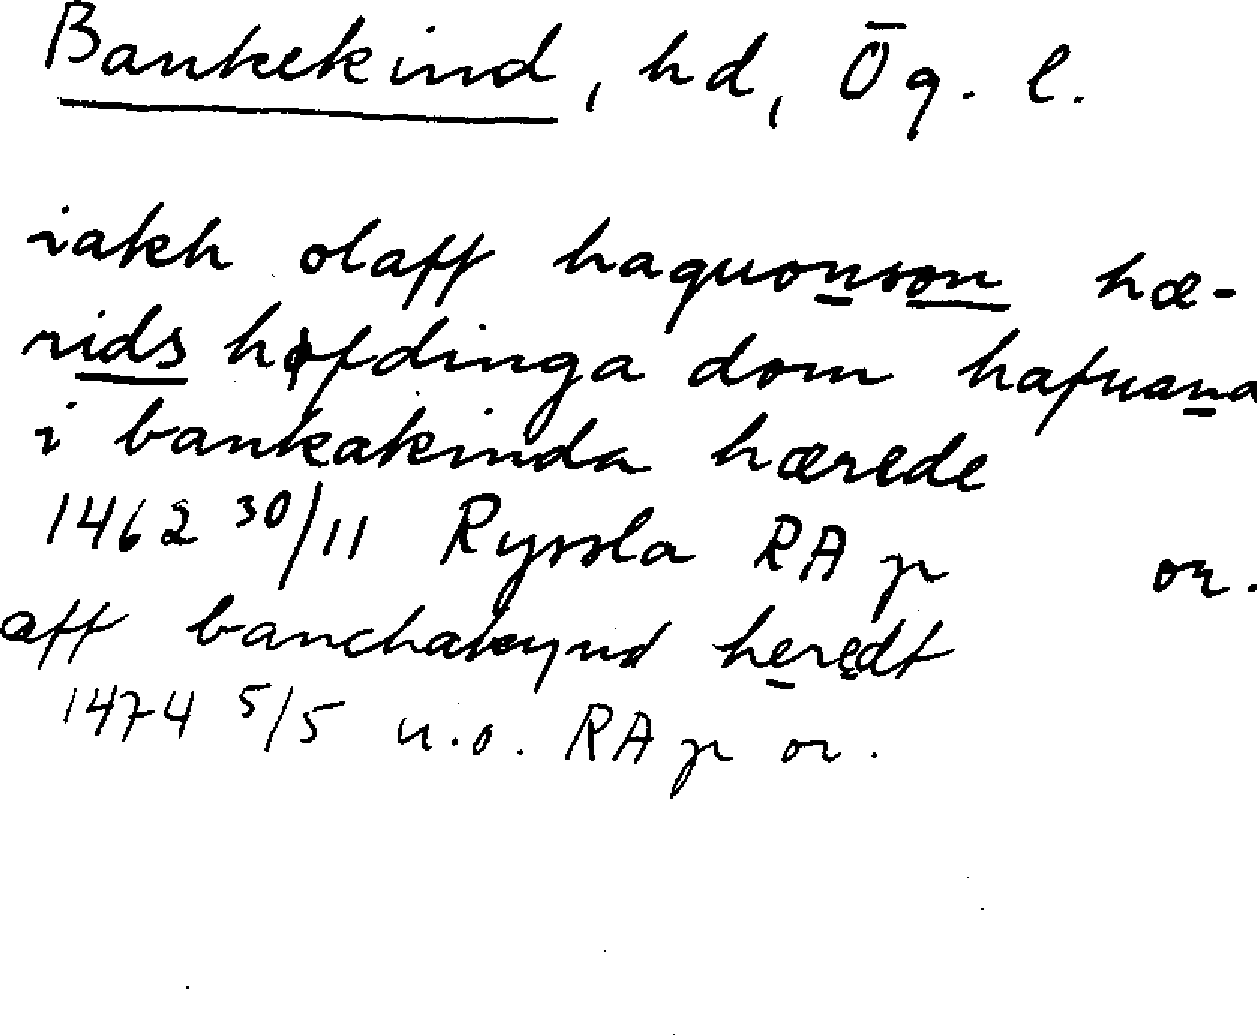 Bankekind, hd, Ög. l.
iakh olaff haquonson hæ-
rids høfdinga dom hafuana
i bankakinda hærede
1462 30/11 Ryssla RA p or.
aff banchakynd heredt
1474 5/5 u.o. RA p or.